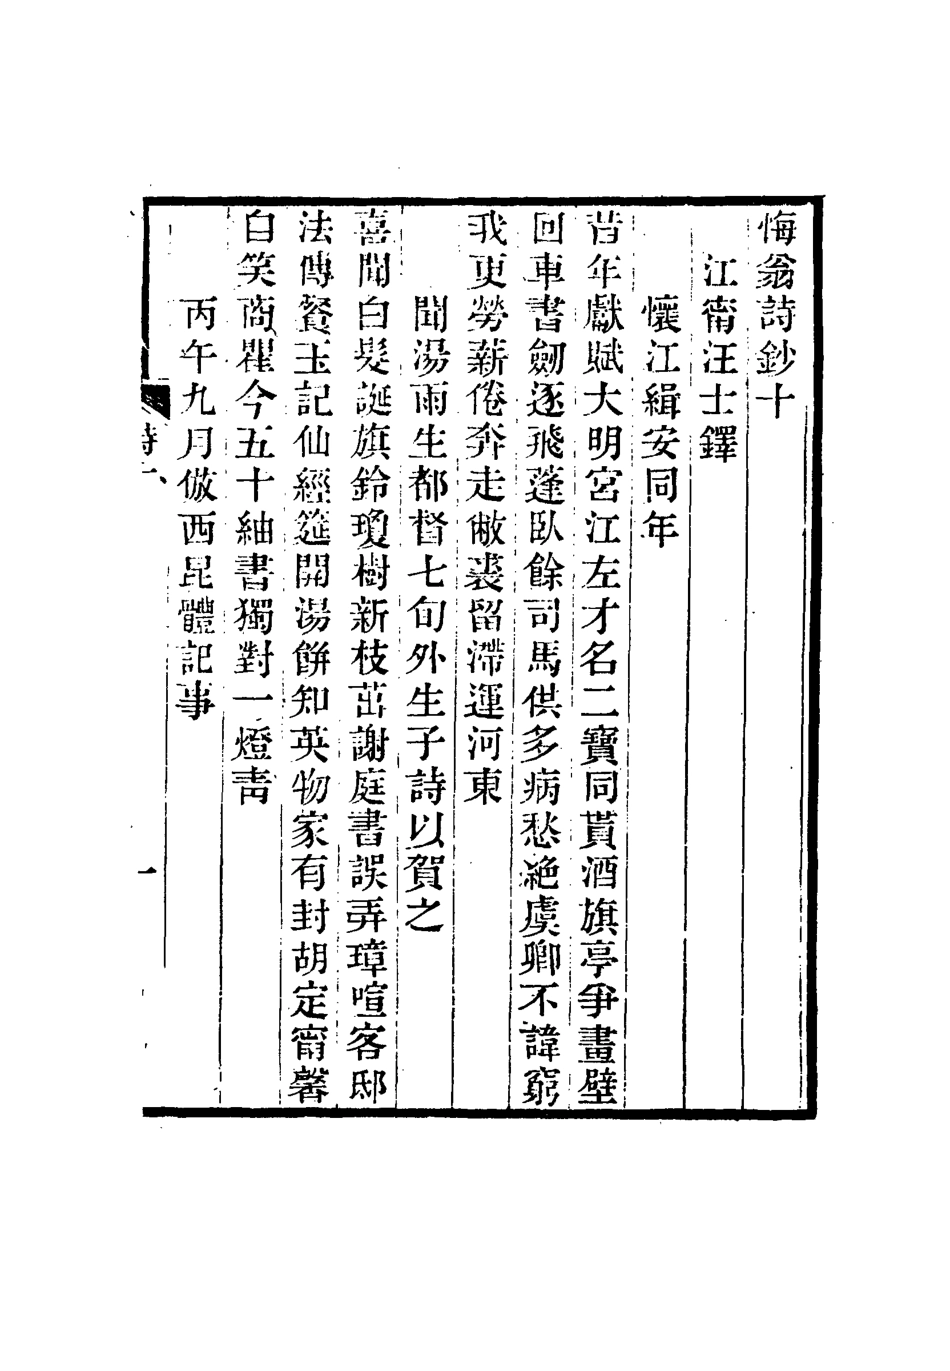 悔翁詩鈔十
江甯汪士鐸
懷江緝安同年
昔年獻賦大明宮江左才名二寶同貰酒旗亭爭畫壁
回車書劒逐飛蓬臥餘司馬供多病愁絕虞卿不諱窮
我更勞薪倦奔走敝裘留滯運河東
聞湯雨生都督七旬外生子詩以賀之
喜聞白髮誕旗鈴瓊樹新枝茁謝庭書誤弄璋喧客邸
法傳餐玉記仙經筵開湯餅知英物家有封胡定甯馨
白笑商瞿今五十紬書獨對一燈青
丙午九月倣西昆體記事
詩十
一